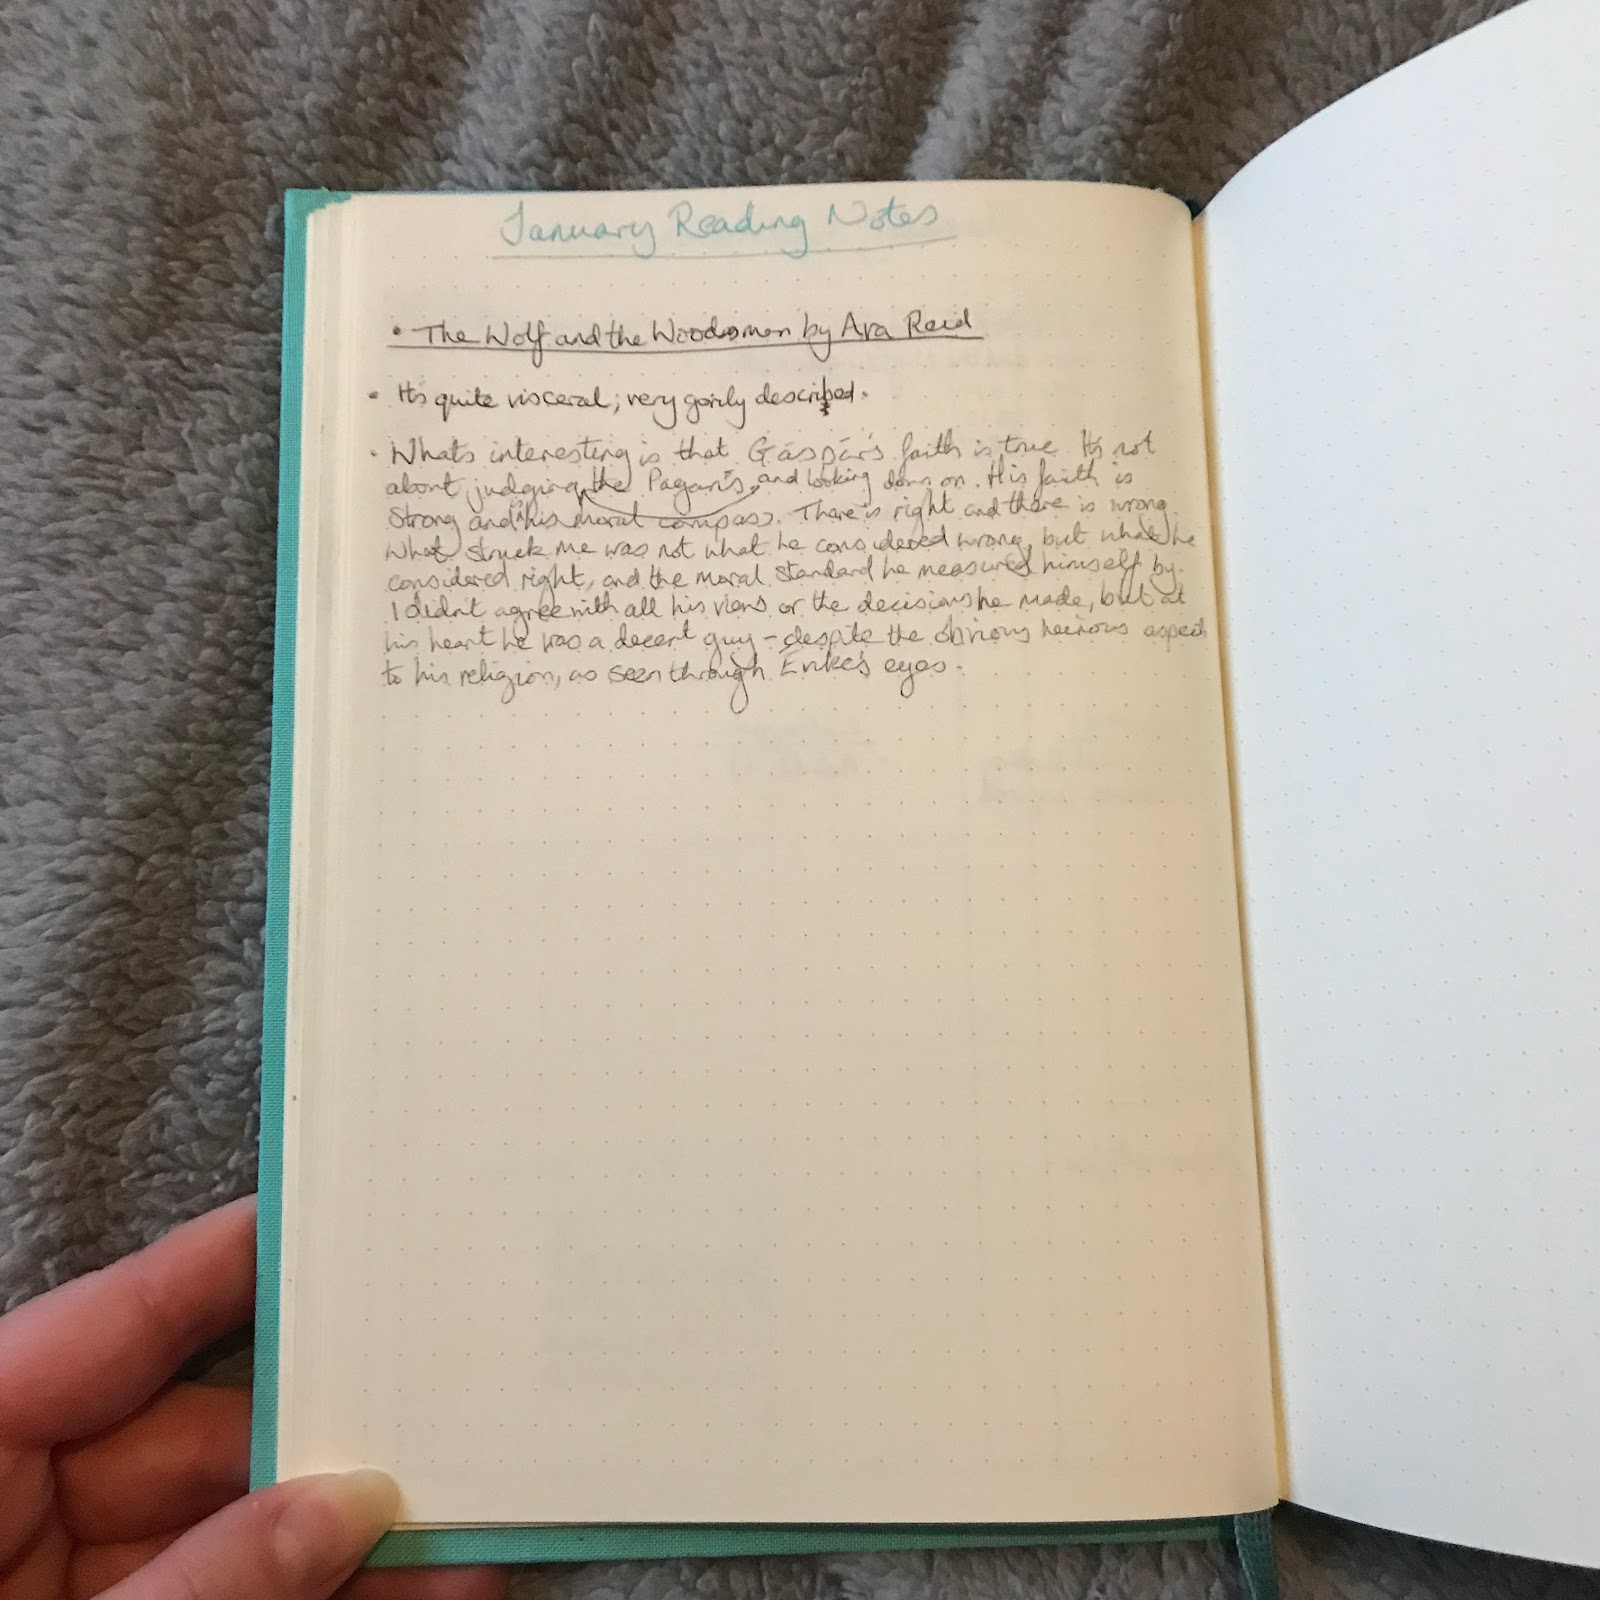 January Reading Notes
• The Wolf and the Woodsman by Ava Reid
• It's quite visceral; very gorily described.
• What's interesting is that Gáspár's faith is true. It's not
about judging the Pagans, and looking down on. His faith is
strong and is his moral compass. There is right and there is wrong.
What struck me was not what he considered wrong, but what he
considered right, and the moral standard he measured himself by.
I didn't agree with all his views or the decisions he made, but at
his heart he was a decent guy - despite the obvious heinous aspects
to his religion, as seen through Évike's eyes.